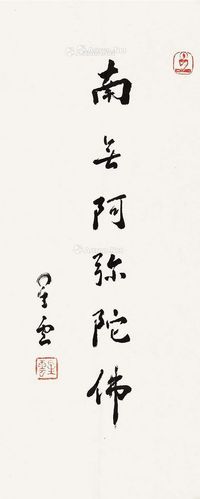 南无阿弥陀佛
星雲